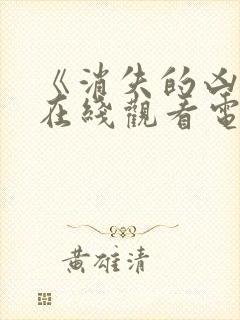 《消失的凶
在线觀看電
黄雄清